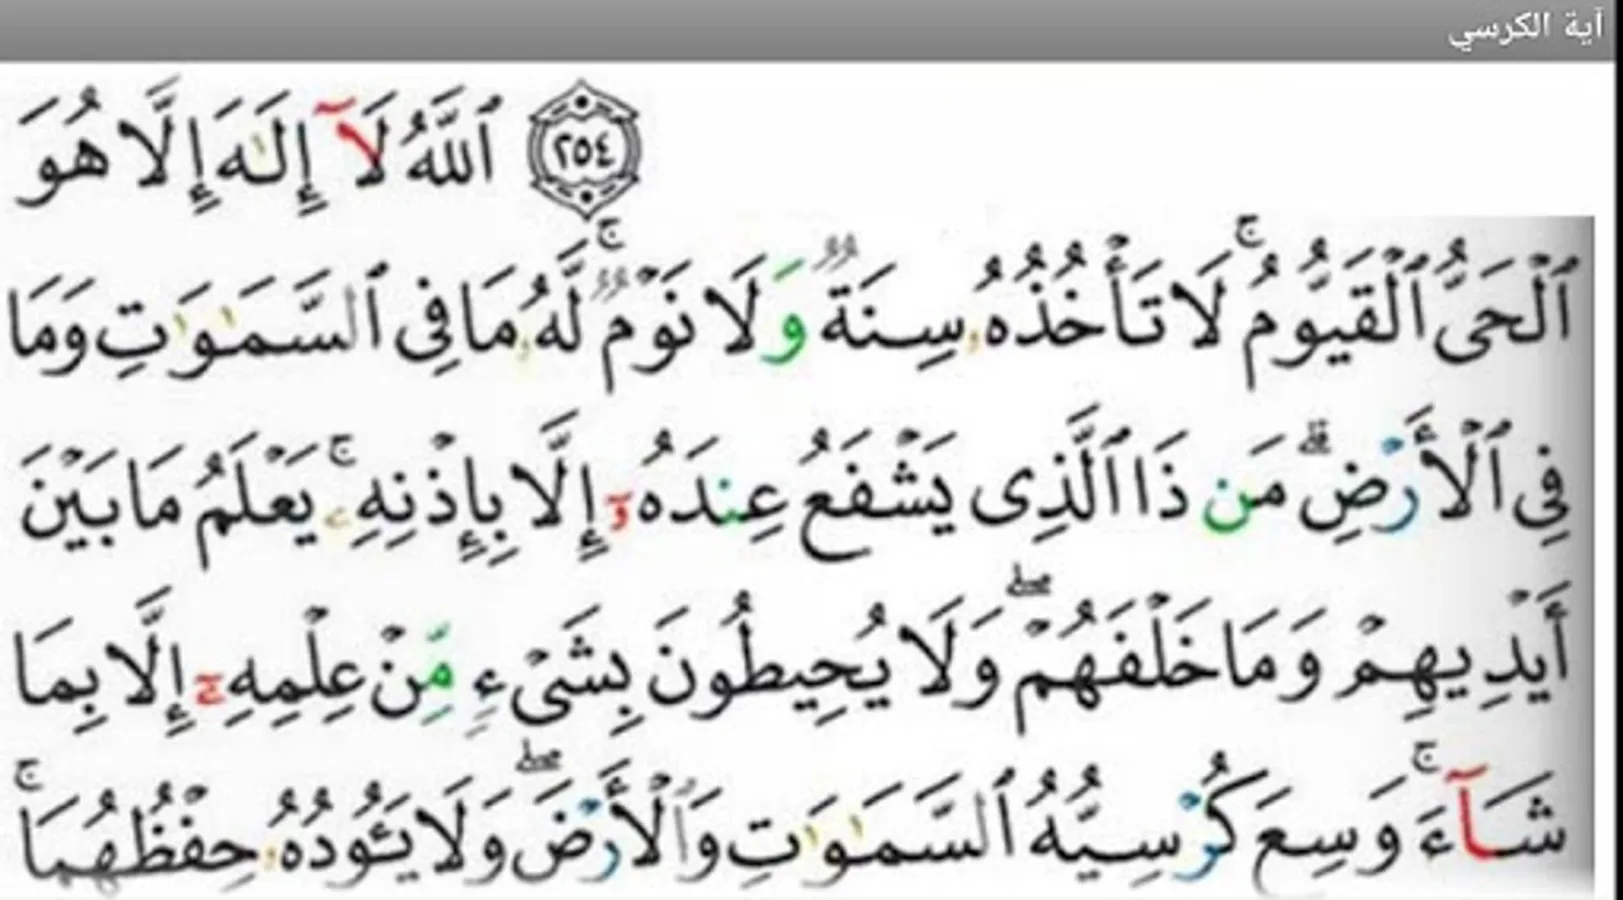 آية الكرسي
٢٥٤ ٱللَّهُ لَآ إِلَـٰهَ إِلَّا هُوَ
ٱلْحَىُّ ٱلْقَيُّومُ ۚ لَا تَأْخُذُهُۥ سِنَةٌ وَلَا نَوْمٌ ۚ لَّهُۥ مَا فِى ٱلسَّمَـٰوَٰتِ وَمَا
فِى ٱلْأَرْضِ ۗ مَن ذَا ٱلَّذِى يَشْفَعُ عِندَهُۥٓ إِلَّا بِإِذْنِهِۦ ۚ يَعْلَمُ مَا بَيْنَ
أَيْدِيهِمْ وَمَا خَلْفَهُمْ ۖ وَلَا يُحِيطُونَ بِشَىْءٍ مِّنْ عِلْمِهِۦٓ إِلَّا بِمَا
شَآءَ ۚ وَسِعَ كُرْسِيُّهُ ٱلسَّمَـٰوَٰتِ وَٱلْأَرْضَ ۖ وَلَا يَـُٔودُهُۥ حِفْظُهُمَا ۚ